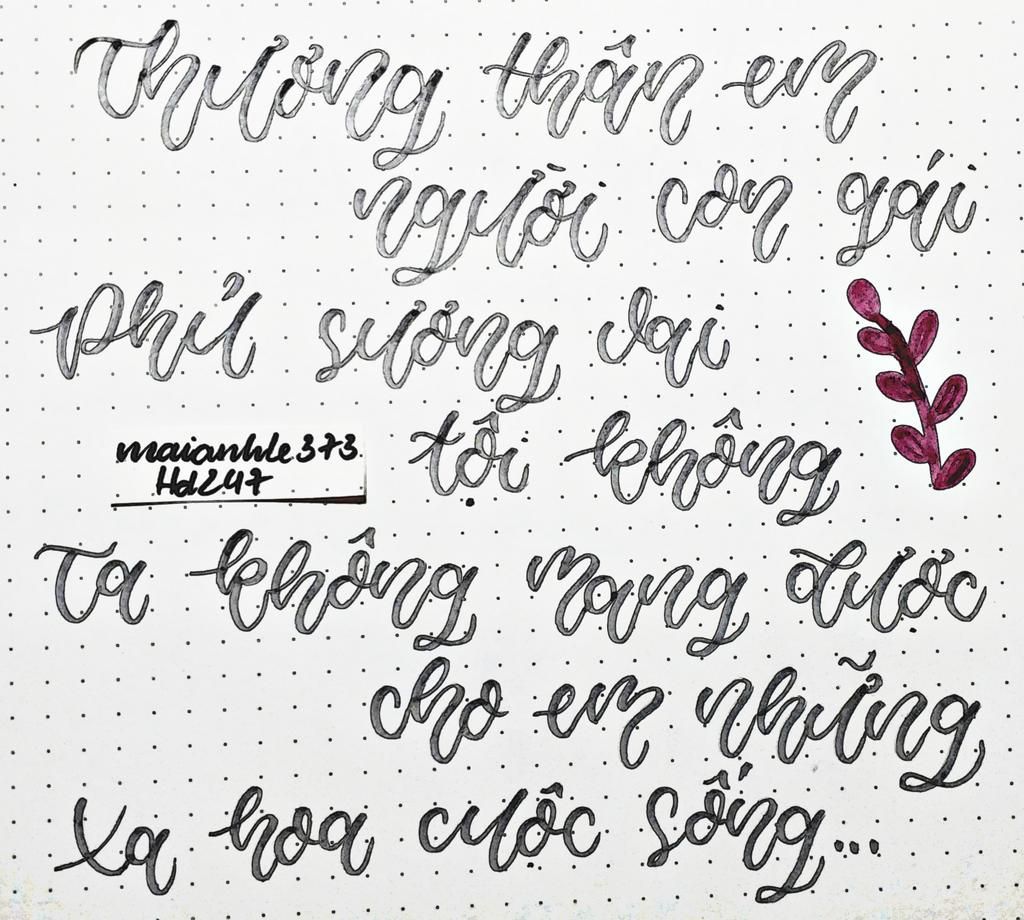 Thương thân em
người con gái
Phủ sương vai
tội không
maianhle373
Hd247
Ta không mang được
cho em những
Xa hoa cuộc sống...